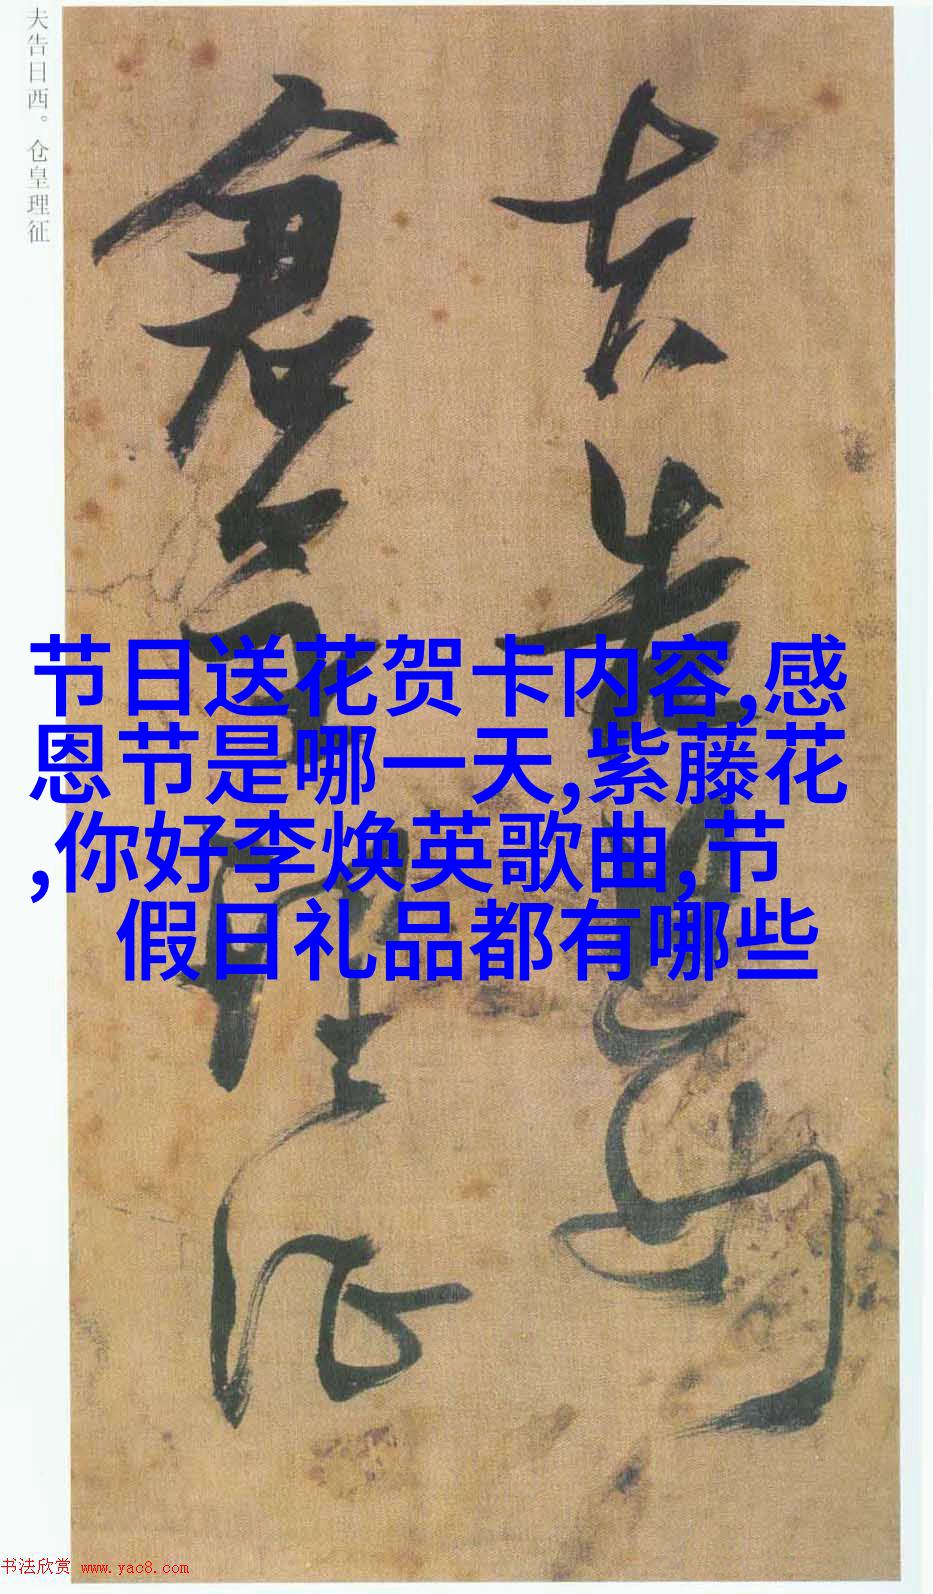 夫告日西。仓皇理征
夫告日西
仓皇理征
节日送花贺卡内容,感
恩节是哪一天,紫藤花
,你好李焕英歌曲,节
假日礼品都有哪些
书法欣赏 www.yac8.com